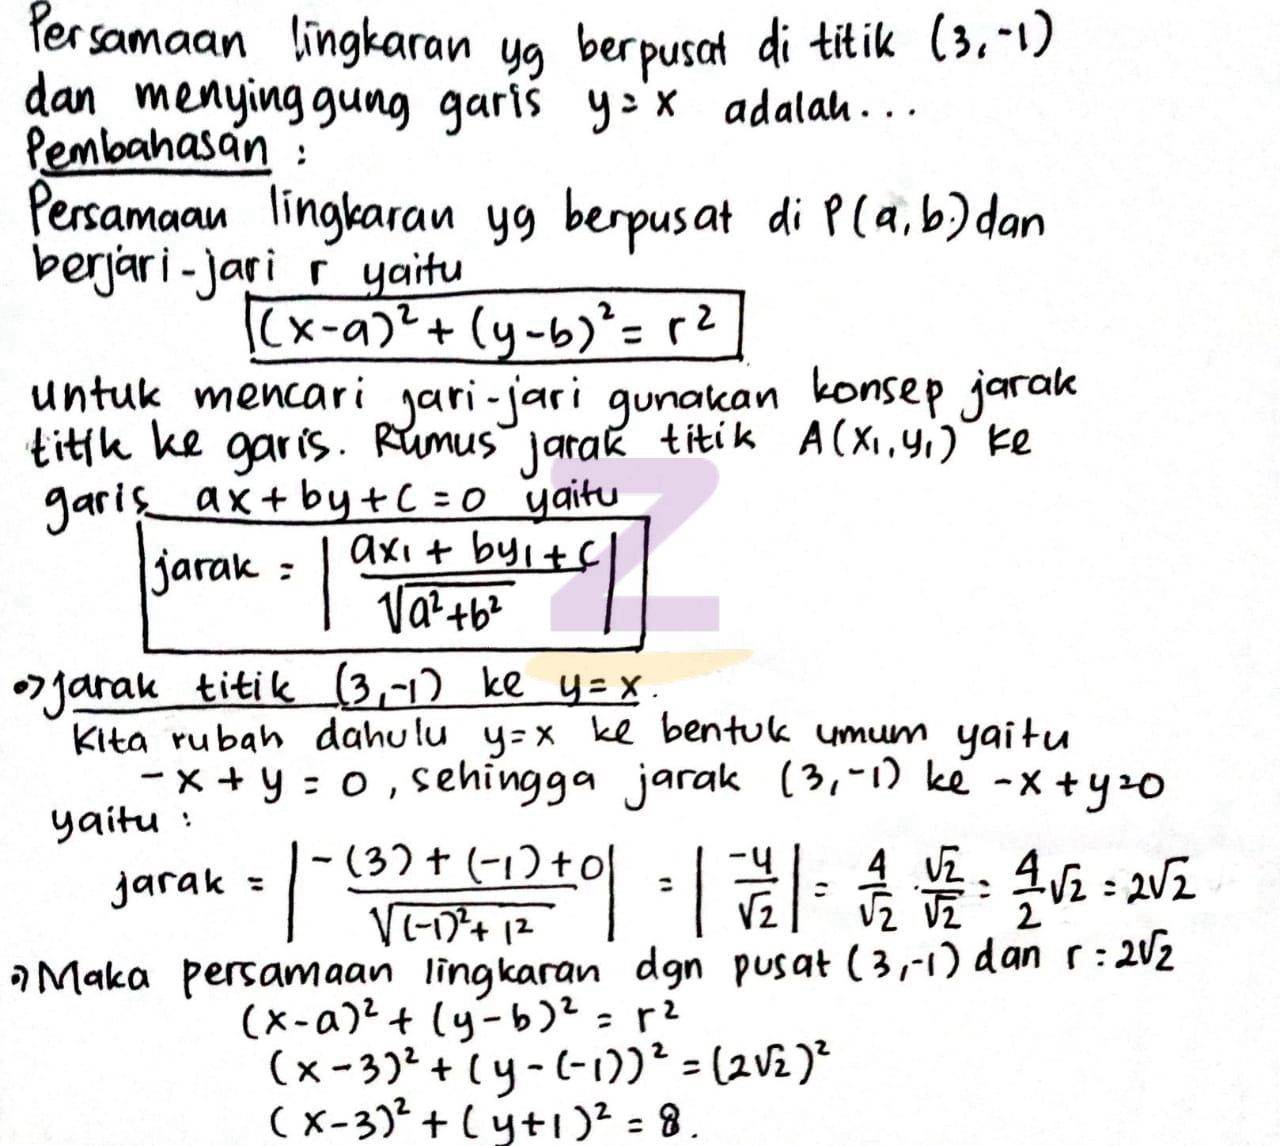 Persamaan lingkaran yg berpusat di titik (3,-1)
dan menyinggung garis y = x adalah...
Pembahasan :
Persamaan lingkaran yg berpusat di P(a,b) dan
berjari-jari r yaitu
(x-a)² + (y-b)² = r²
untuk mencari jari-jari gunakan konsep jarak
titik ke garis. Rumus jarak titik A(x₁,y₁) ke
garis ax + by + c = 0 yaitu
jarak = | (ax₁ + by₁ + c) / √(a²+b²) |
Jarak titik (3,-1) ke y = x.
Kita rubah dahulu y=x ke bentuk umum yaitu
-x + y = 0, sehingga jarak (3,-1) ke -x + y = 0
yaitu :
jarak = | (-(3) + (-1) + 0) / √((-1)² + 1²) | = | -4/√2 | = 4/√2 . √2/√2 = 4/2 √2 = 2√2
Maka persamaan lingkaran dgn pusat (3,-1) dan r = 2√2
(x-a)² + (y-b)² = r²
(x-3)² + (y-(-1))² = (2√2)²
(x-3)² + (y+1)² = 8.
Z